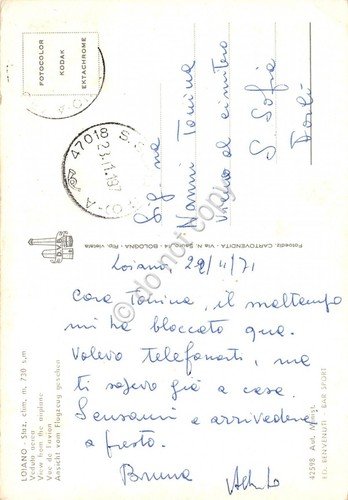 FOTOCOLOR
KODAK
EKTACHROME
47018 S.
23.11.197
Sig.na
Nannini Tonina
Vicino al cimitero
S. Sofia
Forlì
Fotoediz. CARTOVENDITA - Via N. Sauro, 14 - BOLOGNA - Rip. vietata
D.V.B.
Loiano, 22/11/71
Cara Tonina, il maltempo
mi ha bloccato qua.
Volevo telefonarti, ma
ti sapevo già a casa.
Scusami e arrivederci
a presto.
Bruna
LOIANO - Staz. clim. m. 730 s/m
Veduta aerea
View from the airplane
Vue de l'avion
Ansicht vom Flugzeug gesehen
42598 Aut. Minist.
ED. BENVENUTI - BAR SPORT
do not copy